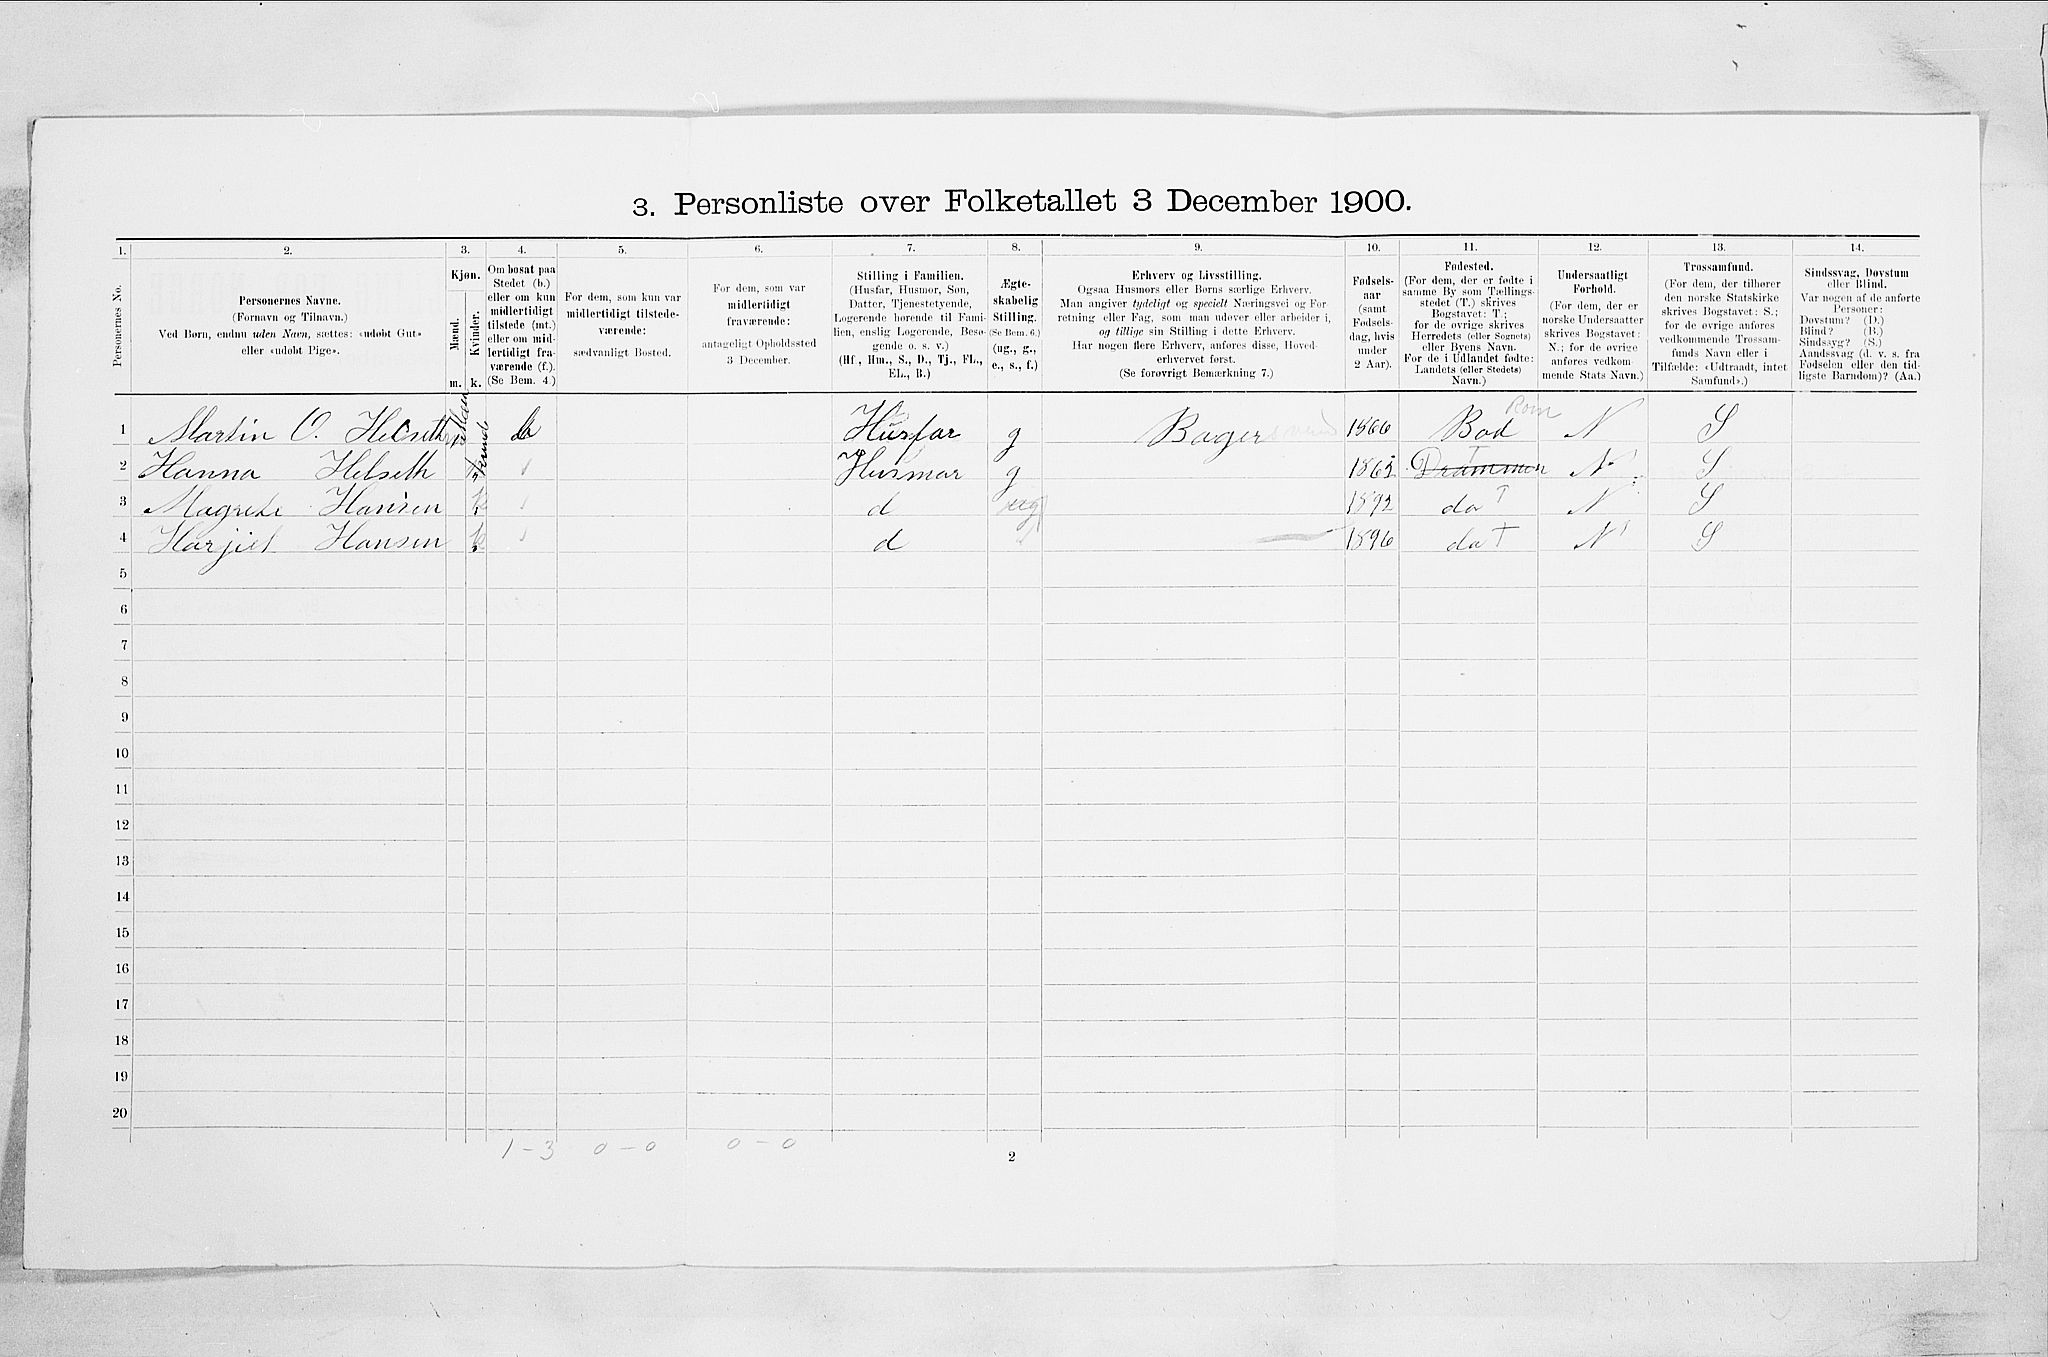 3. Personliste over Folketallet 3 December 1900.
1. 2. 3. 4. 5. 6. 7. 8. 9. 10. 11. 12. 13. 14.
Personernes No.
Personernes Navne.
(Fornavn og Tilnavn.)
Ved Børn, endnu uden Navn, sættes: «udøbt Gut»
eller «udøbt Pige».
Kjøn.
Mænd.
Kvinder.
m. k.
Om bosat paa
Stedet (b.)
eller om kun
midlertidigt
tilstede (mt.)
eller om mid-
lertidigt fra-
værende (f.).
(Se Bem. 4.)
For dem, som kun var
midlertidigt tilstede-
værende:
sædvanligt Bosted.
For dem, som var
midlertidigt
fraværende:
antageligt Opholdssted
3 December.
Stilling i Familien.
(Husfar, Husmor, Søn,
Datter, Tjenestetyende,
Logerende hørende til Fami-
lien, enslig Logerende, Besø-
gende o. s. v.)
(Hf, Hm., S., D., Tj., FL.,
EL., B.)
Ægte-
skabelig
Stilling.
(Se Bem. 6.)
(ug., g.,
e., s., f.)
Erhverv og Livsstilling.
Ogsaa Husmors eller Børns særlige Erhverv.
Man angiver tydeligt og specielt Næringsvei og For
retning eller Fag, som man udøver eller arbeider i,
og tillige sin Stilling i dette Erhverv.
Har nogen flere Erhverv, anføres disse, Hoved-
erhvervet først.
(Se forøvrigt Bemærkning 7.)
Fødsels-
aar
(samt
Fødsels-
dag, hvis
under
2 Aar).
Fødested.
(For dem, der er fødte i
samme By som Tællings-
stedet (T.) skrives
Bogstavet: T.;
for de øvrige skrives
Herredets (eller Sognets)
eller Byens Navn.
For de i Udlandet fødte:
Landets (eller Stedets)
Navn.)
Undersaatligt
Forhold.
(For dem, der er
norske Undersaatter
skrives Bogstavet:
N.; for de øvrige
anføres vedkom-
mende Stats Navn.)
Trossamfund.
(For dem, der tilhører
den norske Statskirke
skrives Bogstavet: S.;
for de øvrige anføres
vedkommende Trossam-
funds Navn eller i
Tilfælde: «Udtraadt, intet
Samfund».)
Sindssvag, Døvstum
eller Blind.
Var nogen af de anførte
Personer:
Døvstum? (D.)
Blind? (B.)
Sindssyg? (S.)
Aandssvag (d. v. s. fra
Fødselen eller den tid-
ligste Barndom)? (Aa.)
1 Martin O. Helseth b Husfar g Bager 1866 Bod Rom N S
2 Hanna Helseth Husmor g Drammen T N S
3 Magrete Hansen k d ug 1892 do T N S
4 Hansen k d 1896 do T N S
5
6
7
8
9
10
11
12
13
14
15
16
17
18
19
20
1 - 3 0 - 0 0 - 0
2